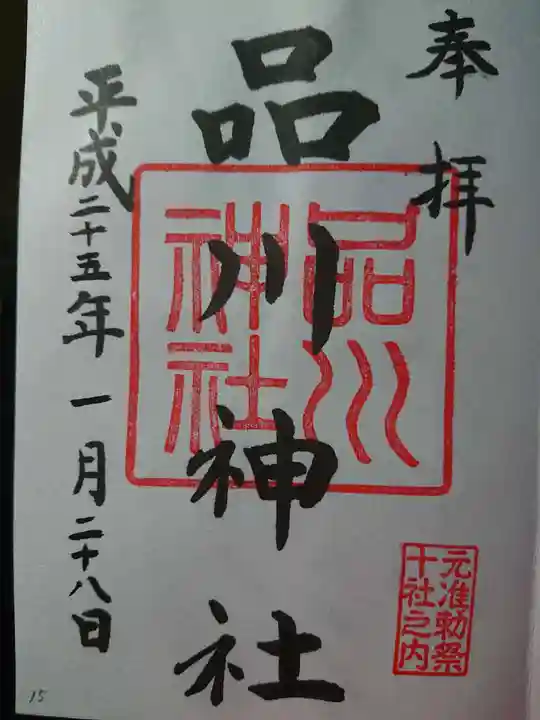 奉拝
品川神社
品川
神社
元准勅祭
十社之内
平成二十五年一月二十八日
15